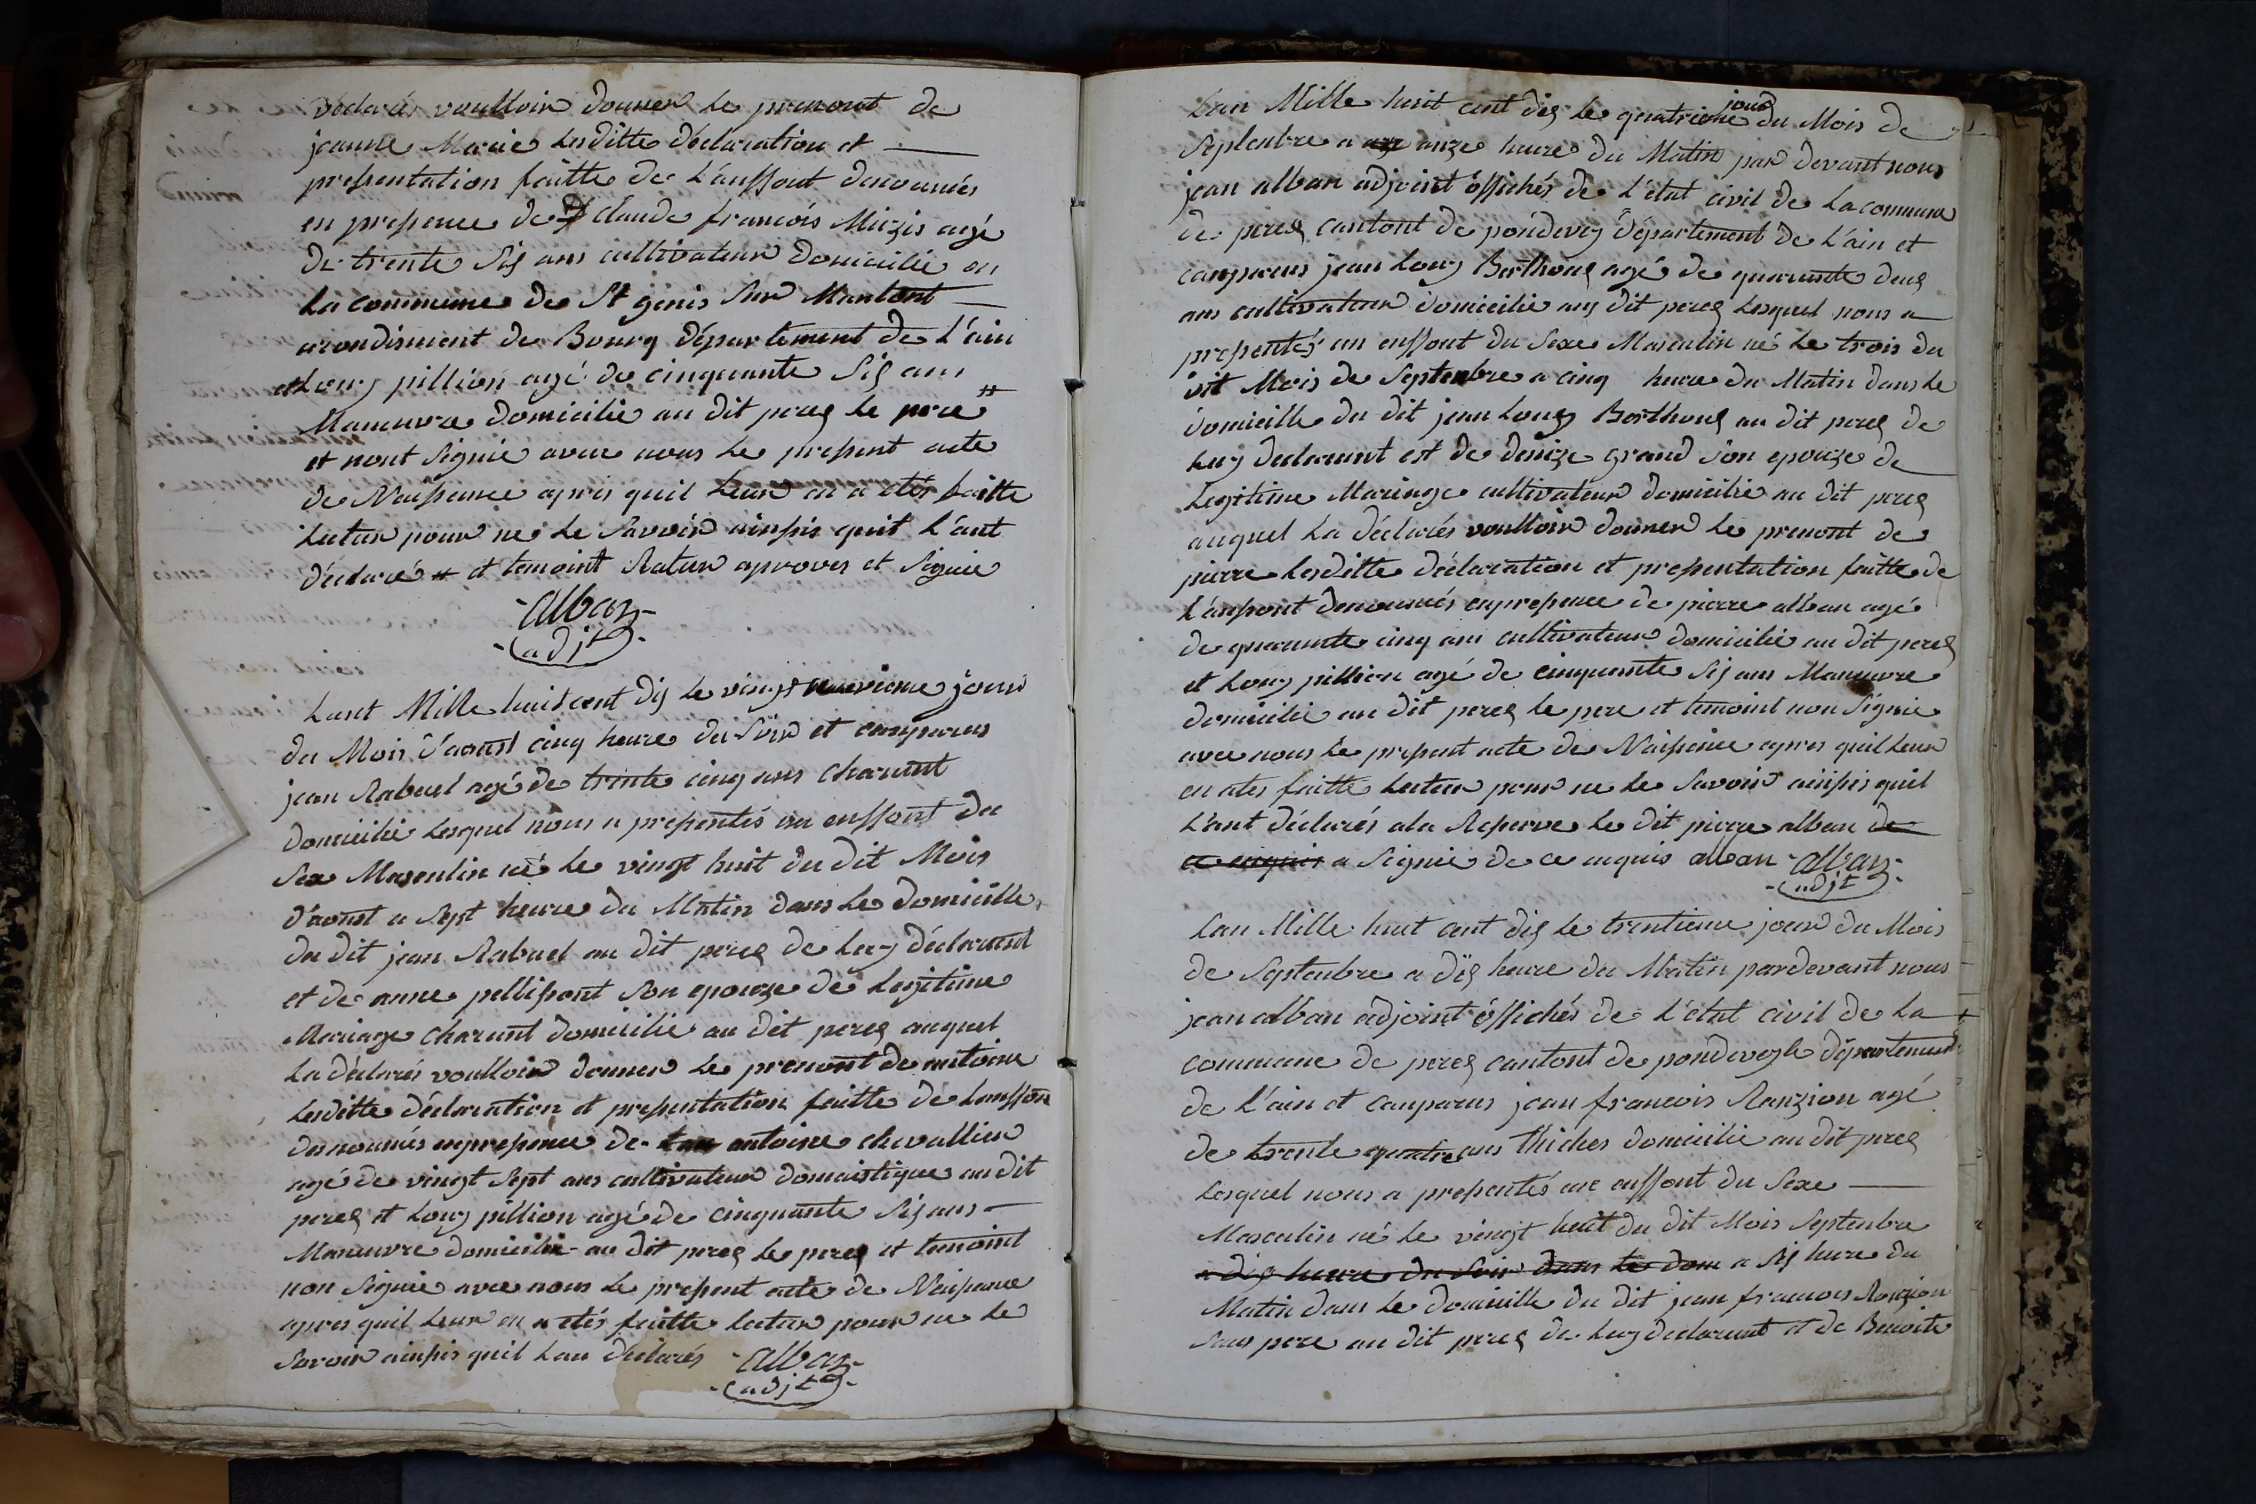 declarés voulloir donner le prenont de
jeanne Marie lesditte déclaration et
presentation faitte de L'anffont denommés
en presence de claude francois Mizis agé
de trente Six ans cultivateur domicilié en
La commune de St genis Sur Mantont
arondisment de Bourg département de L'ain
et Louy pillion agé de cinquante Six ans
Manuvre domicilié au dit perex le pere #
et nont Signié avec nous le present acte
de Naissance apres quil Leur en a etés faitte
Lectur pour ne le Savoir ainssis quil L'ant
déclaré # et temoint Ratur aprover et Signié
alban
adjt
Lant Mille huit cent dix le vingt neuvieme jour
du Mois d'aoust cinq heure du Soir et comparus
jean Rabuel agé de trente cinq ans charont
domicilié Lesquel nous a presentés un enffont du
Sex Masculin né le vingt huit du dit Mois
d'aoust a Sept heure du Matin dans le domicille
du dit jean Rabuel au dit perex de Luy déclarant
et de anne pellissont Son epouze de Legitime
Mariage charont domicilié au dit perex auquel
La déclarés voulloir donner le prenont de antoine
Lesditte déclaration et presentation faitte de Lanffon
denommés enpresence de antoine chevallier
agé de vingt Sept ans cultivateur domaistique au dit
perex et Louy pillion agé de cinquante Six ans
Manuvre domicilié au dit perex le perex et temoint
non Signié avec nous le present acte de Naissance
apres quil Leur en a etés faitte lectur pour ne le
Savoir ainssis quil Lan déclarés alban
adjt
Lan Mille huit cent dix le quatrieme jour du Mois de
Septenbre a onze heure du Matin par devant nous
jean alban adjoint öffichés de L'état civil de La commune
de perex cantont de pondevey département de L'ain et
canparus jean Louy Berthoux agé de quarante deux
ans cultivateur domicilié aux dit perex Lesquel nous a
presentés un enffont du Sexe Masculin né le trois du
dit Mois de Septenbre a cinq heure du Matin dans le
domicille du dit jean Louy Berthoux au dit perex de
Luy declarant est de denize grand Son epouze de
Legitime Mariage cultivateur domicilié au dit perex
auquel La déclarés voulloir donner le prenont de
pierre Lesditte déclaration et presentation faitte de
L'anffont denommés enpresence de pierre alban agé
de quarante cinq ans cultivateur domicilié au dit perex
et Louy pillion agé de cinquante Six ans Manuvre
domicilié au dit perex le pere et temoint non Signié
avec nous le present acte de Naissance apres quil Leur
en etes faitte Lectur pour ne le Savoir ainssis quil
L'ant déclarés ala Reserve le dit pierre alban de
ce enquis a Signié de ce enquis alban alban
adjt
Lan Mille huit cent dix le trentieme jour du Mois
de Septenbre a dix heure du Matin pardevant nous
jean alban adjoint öffichés de L'état civil de La
commune de perex cantont de pondeveyle département
de L'ain et canparus jean francois Ranzion agé
de trente quatre ans thicher domicilié au dit perex
Lesquel nous a presentés un enffont du Sexe
Masculin né le vingt huit du dit Mois Septenbre
a dix heure du Soir dans le dom a Six heure du
Matin dans le domicille du dit jean francois Ranzion
Sous pere au dit perex de Luy declarant et de Benoite